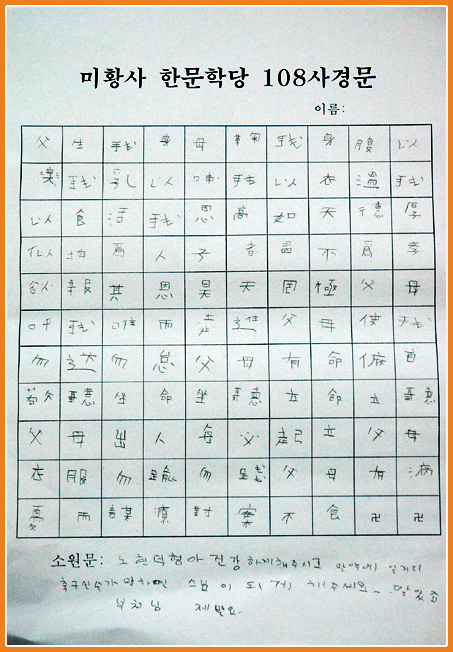 미황사 한문학당 108사경문
이름:
父 生 我 身 母 鞠 我 身 腹 以
懷 我 乳 以 哺 我 以 衣 溫 我
以 食 活 我 恩 高 如 天 德 厚
似 地 爲 人 子 者 曷 不 爲 孝
欲 報 其 恩 昊 天 罔 極 父 母
呼 我 唯 而 走 進 父 母 使 我
勿 逆 勿 怠 父 母 有 命 俯 首
敬 聽 坐 命 坐 聽 立 命 立 聽
父 母 出 入 每 必 起 立 父 母
衣 服 勿 踰 勿 踐 父 母 有 病
憂 而 謀 療 對 案 不 食 卍 卍
소원문: 노현덕형아 건강하게해주시고 만약에
축구선수가 스님이 되게 해주세요~ 알았죠
부처님 제발요.